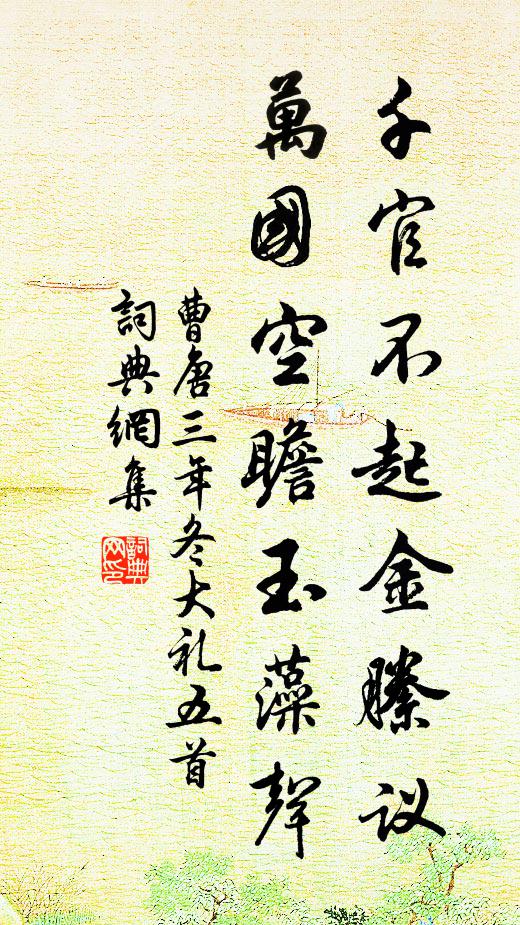 千官不起金縢议
萬國空瞻玉藻聲
曹唐三年冬大礼五首
詞典網集
詞典网印